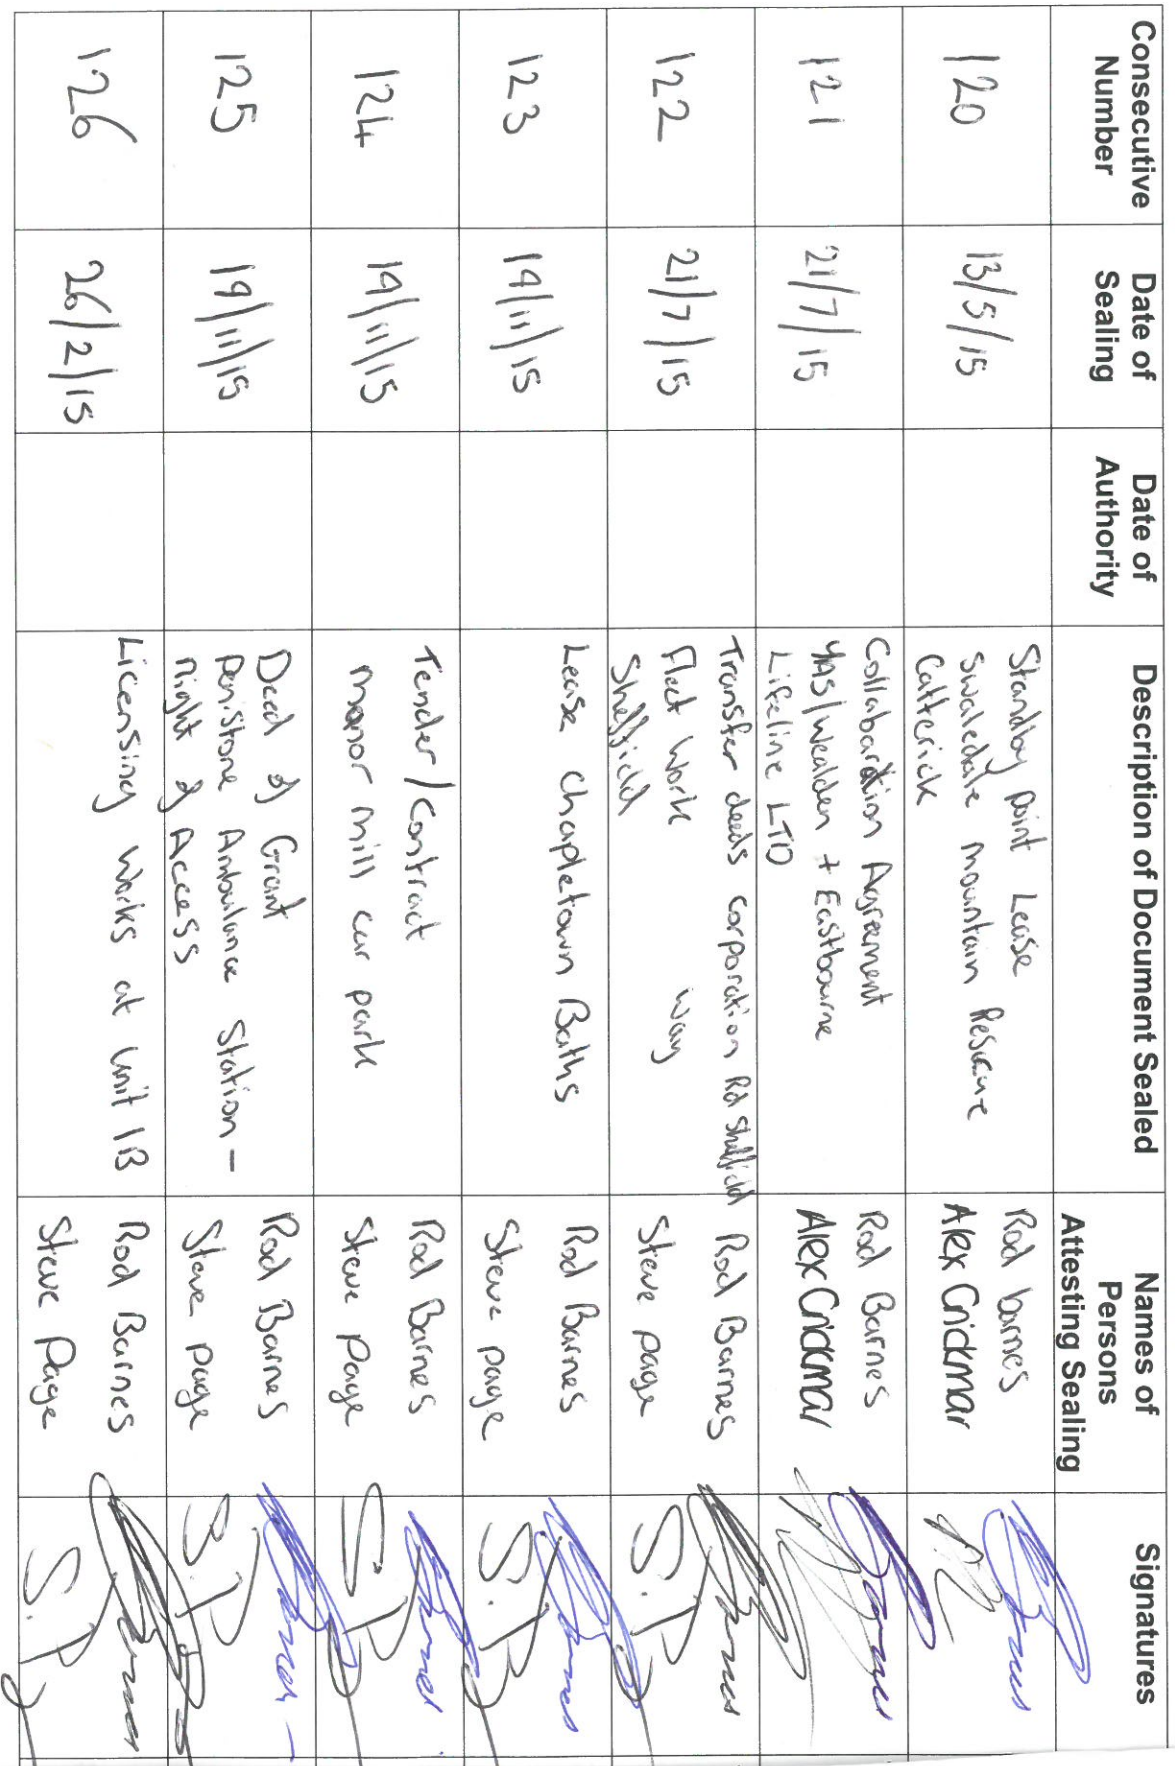 Consecutive
Number
Date of
Sealing
Date of
Authority
Description of Document Sealed
Names of
Persons
Attesting Sealing
Signatures
120
13/5/15
Standby point Lease
Swaledale mountain Rescue
Catterick
Rod barnes
Alex Crickmar
121
21/7/15
Collaboration Agreement
YAS/Wealden + Eastbourne
Lifeline LTD
Rod Barnes
Alex Crickmar
122
21/7/15
Transfer deeds corporation Rd Sheffield
Fleet Work Way
Sheffield
Rod Barnes
Steve page
S.P
123
19/11/15
Lease Chapletown Baths
Rod Barnes
Steve page
S.P
124
19/11/15
Tender/Contract
manor mill car park
Rod Barnes
Steve Page
S.P
125
19/11/15
Deed of Grant
Penistone Ambulance Station -
Right of Access
Rod Barnes
Steve page
S.P
126
26/2/15
Licensing Works at Unit 1B
Rod Barnes
Steve Page
S.P